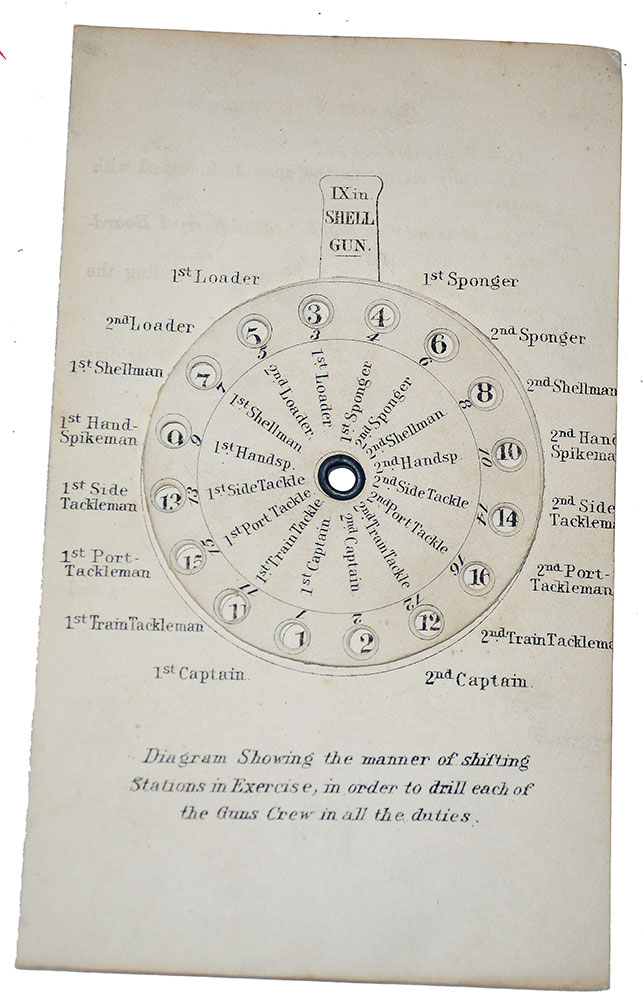 IX in.
SHELL
GUN.
1st Loader
1st Sponger
2nd Loader
2nd Sponger
1st Shellman
2nd Shellman
1st Hand-
Spikeman
2nd Hand
Spikema
1st Side
Tackleman
2nd Side
Tacklem
1st Port-
Tackleman
2nd Port-
Tackleman
1st Train Tackleman
2nd Train Tacklema
1st Captain.
2nd Captain.
3
4
5
6
7
8
9
10
13
14
15
16
11
12
1
2
3
4
5
6
7
8
9
10
13
14
15
16
11
12
1
2
1st Loader
1st Sponger
2nd Loader.
2nd Sponger
1st Shellman
2nd Shellman
1st Handsp.
2nd Handsp
1st Side Tackle
2nd Side Tackle
1st Port Tackle
2nd Port Tackle
1st Train Tackle
2nd Train Tackle
1st Captain
2nd Captain
Diagram Showing the manner of shifting
Stations in Exercise, in order to drill each of
the Guns Crew in all the duties.